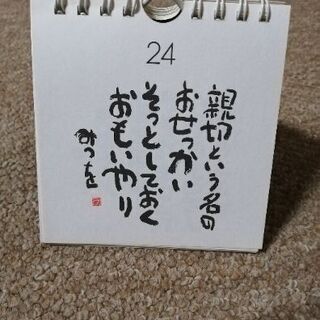 24
親切という名の
おせっかい
そっとしておく
おもいやり
みつを